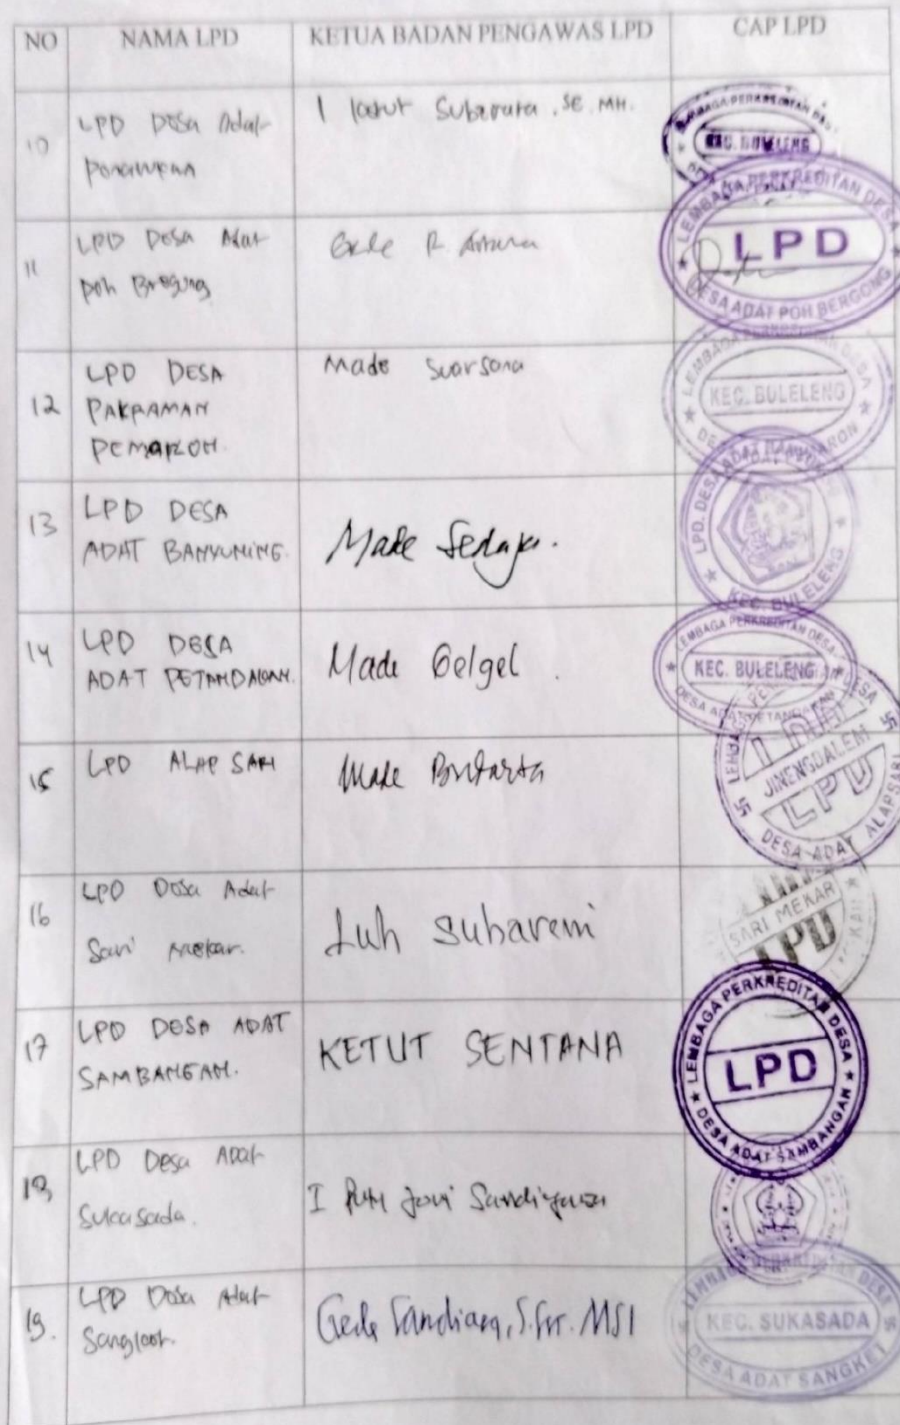 NO NAMA LPD KETUA BADAN PENGAWAS LPD CAP LPD
10 LPD Desa Adat I Ketut SE. MH.
KEC. BULELENG
11 LPD Desa Adat Gede
Poh Bergong
LEMBAGA PERKREDITAN DESA
LPD
DESA ADAT POH BERGONG
12 LPD DESA Made Suarsana
PAKRAMAN
PEMARON.
LEMBAGA PERKREDITAN DESA
KEC. BULELENG
13 LPD DESA
ADAT BANYUNING. Made
LPD. DESA ADAT
KEC. BULELENG
14 LPD DESA
ADAT PETANDAKAN. Made Gelgel
LEMBAGA PERKREDITAN DESA
KEC. BULELENG
DESA ADAT PETANDAKAN
15 LPD ALAP SARI Made
JINENGDALEM
LPD
DESA ADAT ALAPSARI
16 LPD Desa Adat
Sari Mekar. Luh Subareni
SARI MEKAR
LPD
17 LPD DESA ADAT
SAMBANGAN. KETUT SENTANA
LEMBAGA PERKREDITAN DESA
LPD
DESA ADAT SAMBANGAN
18 LPD Desa Adat
Sukasada. I Putu
19. LPD Desa Adat
Sangket. Gede MSI
LEMBAGA PERKREDITAN DESA
KEC. SUKASADA
DESA ADAT SANGKET